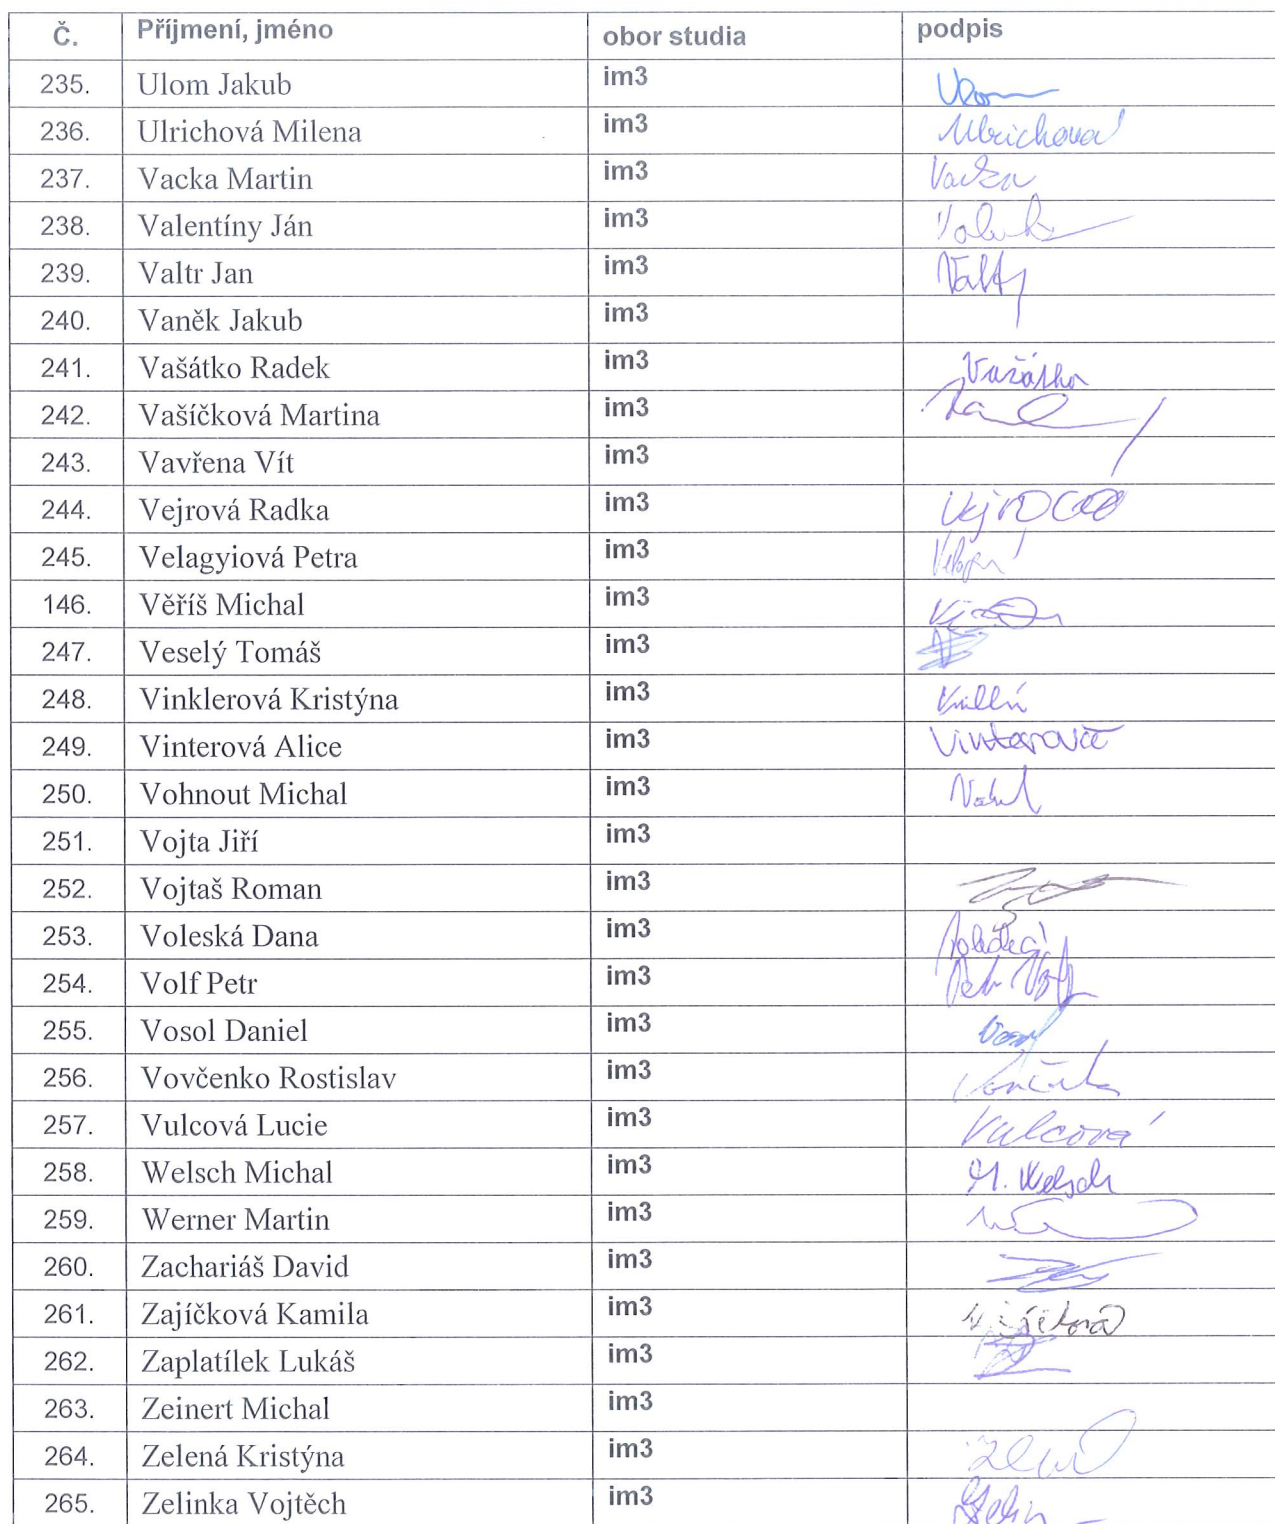 Č. Příjmení, jméno obor studia podpis
235. Ulom Jakub im3
236. Ulrichová Milena im3 Ulrichová
237. Vacka Martin im3 Vacka
238. Valentíny Ján im3
239. Valtr Jan im3
240. Vaněk Jakub im3
241. Vašátko Radek im3 Vašátko
242. Vašíčková Martina im3
243. Vavřena Vít im3
244. Vejrová Radka im3
245. Velagyiová Petra im3
146. Věříš Michal im3
247. Veselý Tomáš im3
248. Vinklerová Kristýna im3
249. Vinterová Alice im3 Vinterová
250. Vohnout Michal im3
251. Vojta Jiří im3
252. Vojtaš Roman im3
253. Voleská Dana im3
254. Volf Petr im3 Petr Volf
255. Vosol Daniel im3
256. Vovčenko Rostislav im3
257. Vulcová Lucie im3 Vulcová
258. Welsch Michal im3 M. Welsch
259. Werner Martin im3
260. Zachariáš David im3
261. Zajíčková Kamila im3
262. Zaplatílek Lukáš im3
263. Zeinert Michal im3
264. Zelená Kristýna im3
265. Zelinka Vojtěch im3